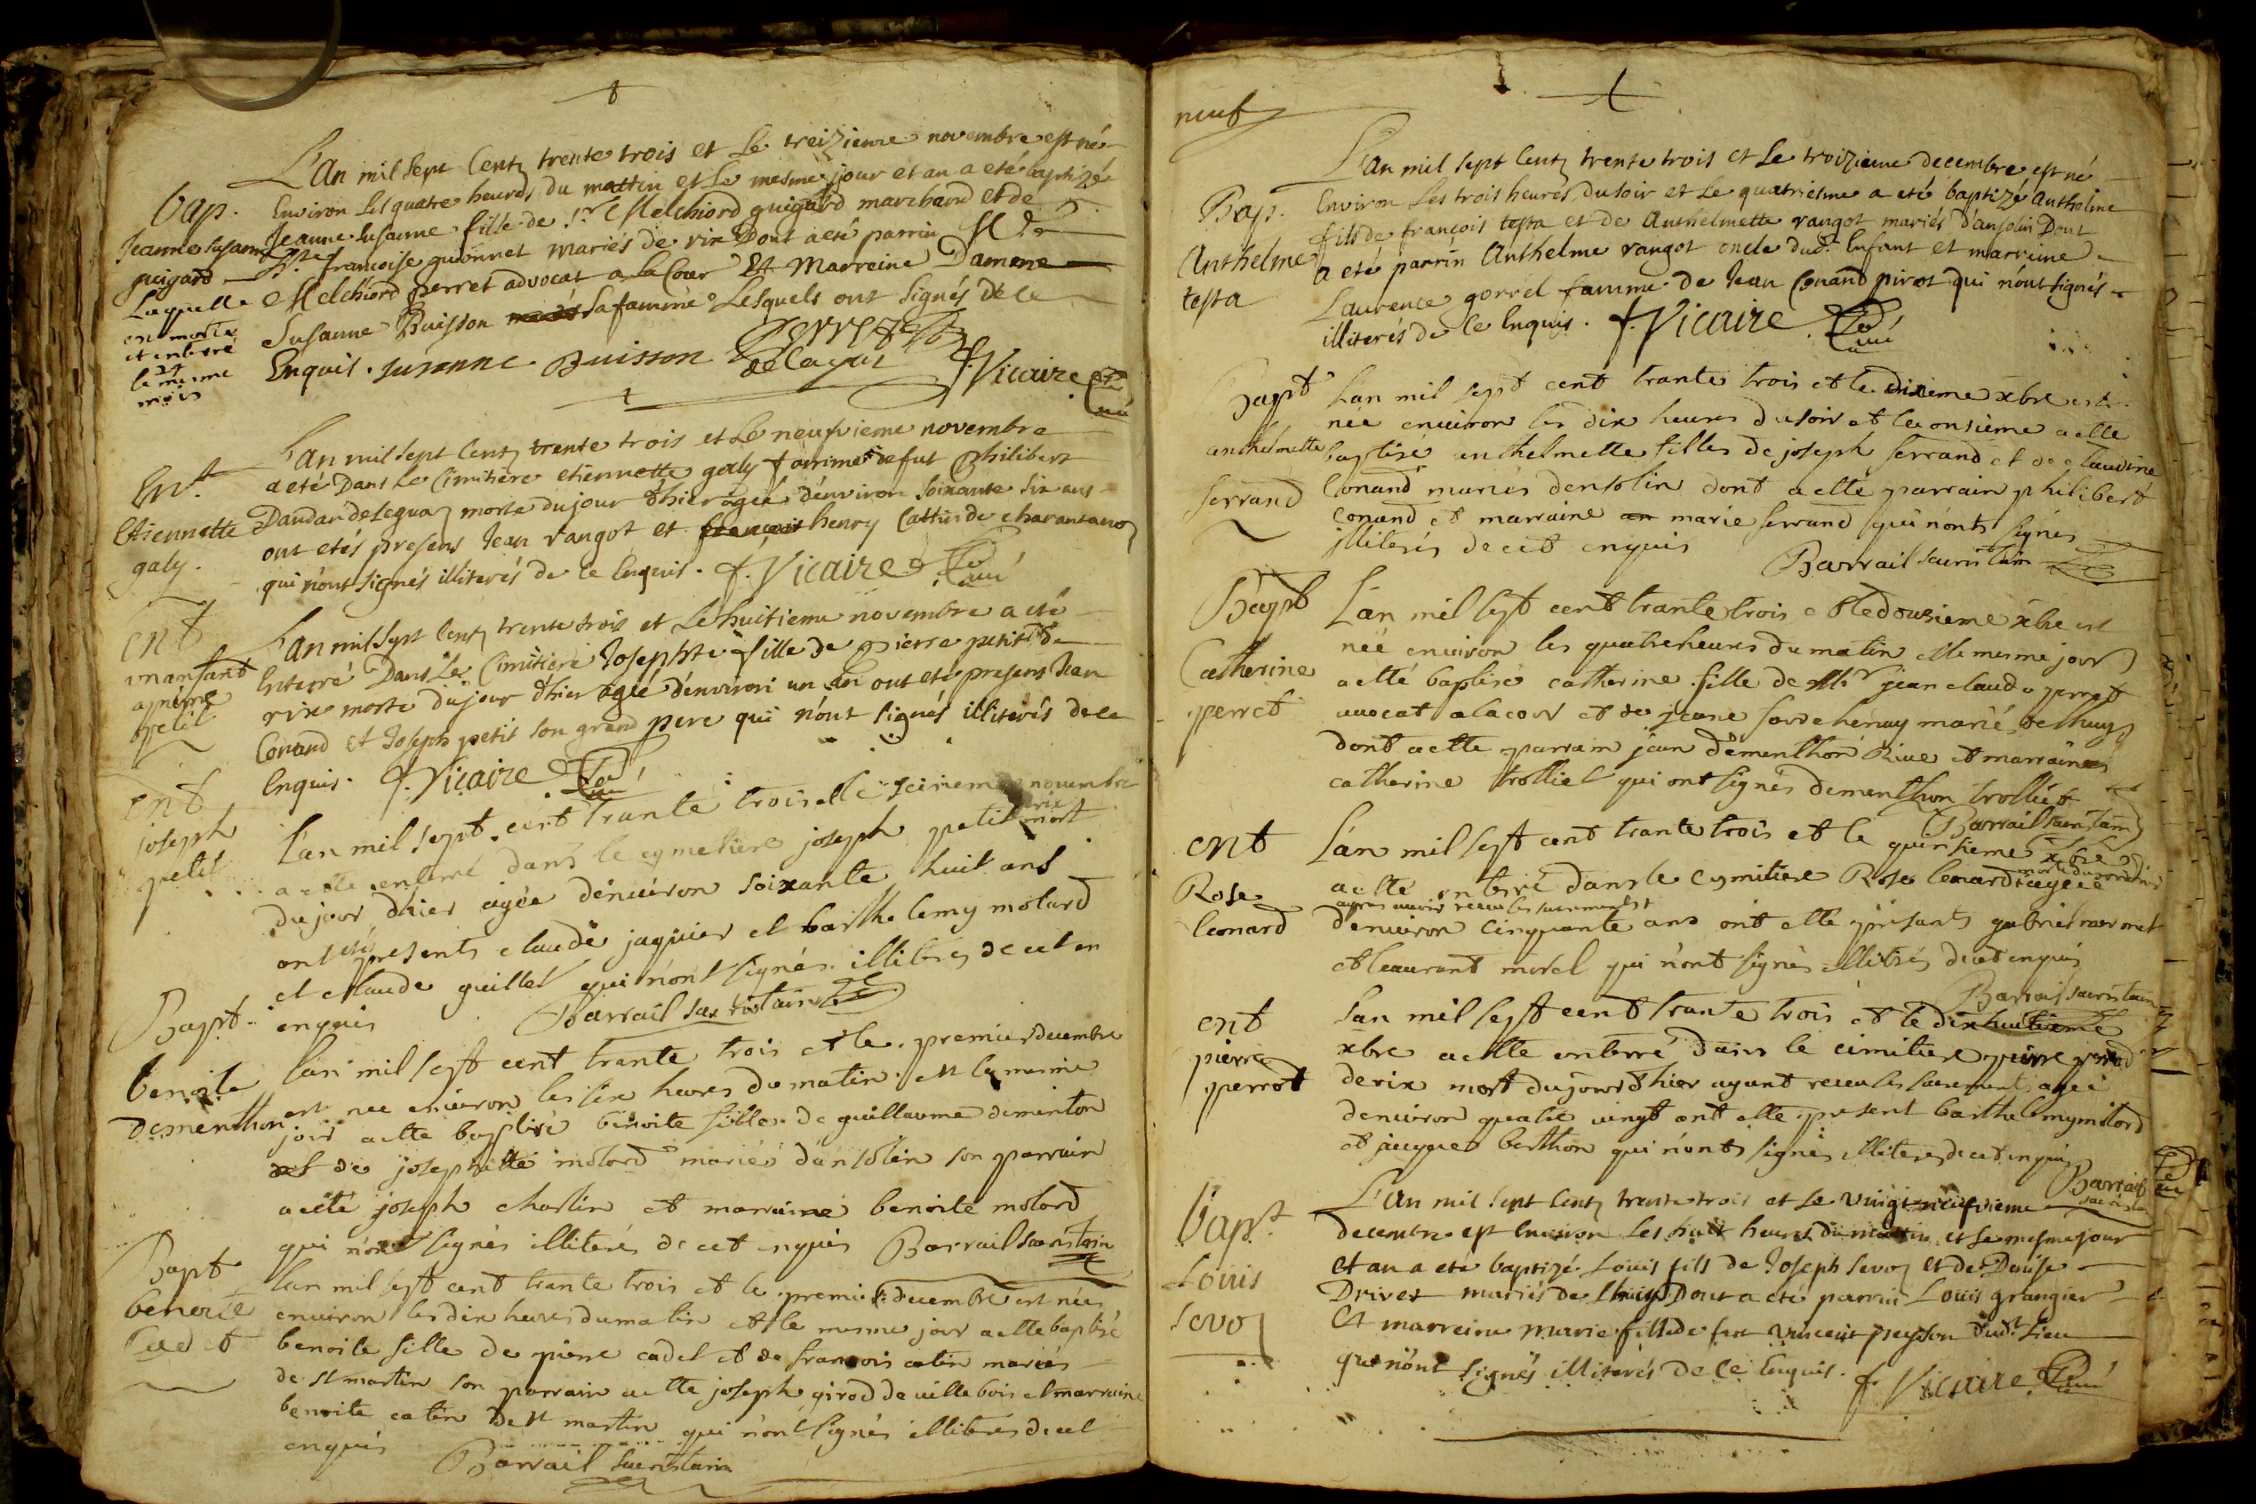 L'An mil sept Centz trente trois et Le treizieme novembre est né
bap.
Environ les quatre heures du mattin et Le mesme jour et an a eté baptizé
Jeanne Susanne
Jeanne Susanne fille de Sr Melchiord guigard marchand et de
guigard
Françoise guionnet mariés de rix Dont a eté parrin Mr
Laquelle
Melchiord perret advocat a La Cour Et Marreine Damme
en morte
et enterré
Susanne Buisson sa famme Lesquels ont signés de ce
27
le mesme
mois
Enquis. susanne Buisson Perret
f. Vicaire Curé
L'An mil sept Centz trente trois et Le neufvieme novembre
Ent.
a eté Dans Le Cimitière etiennette galy famme de fut Philibert
Etiennette
Dandar de Leguaz morte du jour d'hier agée d'environ soixante six ans
galy.
ont etés presens Jean rangot et henry Cattin de charantanoz
qui n'ont signés illiterés de ce Enquis. f. Vicaire Curé
ent
L'An mil sept Centz trente trois et Le huitieme novembre a eté
un anfand
Enterré Dans Le Cimitière Josephte fille de Pierre petit de
a pierre
rix morte du jour d'hier agié d'environ un An ont eté presens Jean
petit
Conand et Joseph petit son grand pere qui n'ont signés illiterés de ce
Enquis. f. Vicaire Curé
ent
L'an mil sept cent trante trois et le seisieme novembre
joseph
a etté enterré dans le cymetiere joseph petit rix mort
petit
du jour d'hier agée d'enuiron soixante huit ans
ont etés presents claude jaquier et barthelemy molard
et claude guillet qui n'ont signés illitrés de cet en
enquis Barrail sacristain
Bapt
L'an mil sept cent trante trois et le premier decembre
benoite
est née enuiron les six heures du matin et le mesme
dementhon
jour a etté baptisé benoite filles de guillaume dementon
et de josephte molard mariés d'ansolin son parrain
a etté joseph charlin et marraine benoite molard
qui n'ont signés illiterés de cet enquis Barrail sacristain
Bapt
L'an mil sept cent trante trois et le premier decembre est née
benoite
enuiron les dix heures du matin et le mesme jour a etté baptisé
Cadet
benoite fille de pierre cadet et de françois catin mariés
de st martin son parrain a etté joseph girod de uille bois et marraine
benoite catin de st martin qui n'ont signés illiteres de cet
enquis Barrail sacristain
neuf
L'an mil sept Centz trente trois et Le troizieme decembre est né
Bap.
Environ Les trois heures du soir et Le quatriesme a eté baptizé Anthelme
Anthelme
fils de françois testa et de Anthelmette rangot mariés d'ansolin Dont
testa
a eté parrin Anthelme rangot oncle dud. Enfant et marreine
Laurence gorrel famme de Jean Conand pirot qui n'ont signés
illiterés de ce Enquis. f. Vicaire Curé
Bapt
L'an mil sept cent trante trois et le dixieme xbre est
anthelmette
née enuiron les dix heures du soir et le onsieme a etté
ferrand
baptisé anthelmette filles de joseph ferrand et de claudine
Conand mariés d'ensolin dont a etté parrain philibert
conand et marraine marie ferrand qui n'ont signés
illiterés de cet enquis Barrail sacristain
Bapt
L'an mil sept cent trante trois et le dousieme xbre est
Catherine
née enuiron les quatre heures du matin et le mesme jour
perret
a etté baptisé catherine fille de Mr jean claude perret
auocat a la cour et de jeane mariés de
dont a etté parrain jean dementhon Riue et marraine
catherine trolliet qui ont signés dementhon trolliet
Barrail sacristain
ent
L'an mil sept cent trante trois et le quinsieme xbre
Rose
a etté enterré dans le cymitiere Rose leonard agee
leonard
apres auoir receu les sacrements
d'enuiron cinquante ans ont etté présants gabriel
et laurant morel qui n'ont signés illitrés de cet enquis
Barrail sacristain
ent
L'an mil sept cent trante trois et le dix huitieme
pierre
xbre a etté enterré dans le cimitiere pierre perrod
perrot
de rix mort du jour d'hier ayant receu les sacrements agee
d'enuiron quatre uingt ont etté present barthelemy molard
et jacque berthon qui n'ont signés illiteres de cet enquis
Barrail sacristain
L'An mil sept Centz trente trois et Le vingt neufvieme
Bapt.
decembre est Environ Les huit heures du mattin et Le mesme jour
Louis
et an a eté baptizé Louis fils de Joseph Sevoz et de Denise
Sevoz
Drivet mariés de Dont a eté parrin Louis grangier
Et marreine marie fille de feu vincent peysson dud. Lieu
qui n'ont signés illiterés de ce Enquis. f. Vicaire Curé